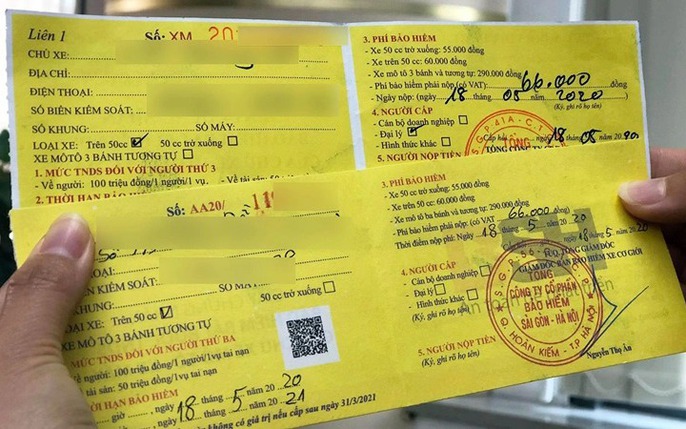 Liên 1
Số: XM 20
CHỦ XE:
ĐỊA CHỈ:
ĐIỆN THOẠI:
SỐ BIỂN KIỂM SOÁT:
SỐ KHUNG: SỐ MÁY:
LOẠI XE: Trên 50cc 50 cc trở xuống:
XE MÔTÔ 3 BÁNH TƯƠNG TỰ
1. MỨC TNDS ĐỐI VỚI NGƯỜI THỨ 3
- Về người: 100 triệu đồng/1 người/1 vụ. - Về tài sản: 50
2. THỜI HẠN BẢO HIỂM
3. PHÍ BẢO HIỂM
- Xe 50 cc trở xuống: 55.000 đồng
- Xe trên 50 cc: 60.000 đồng
- Xe mô tô 3 bánh và tương tự: 290.000 đồng
- Phí bảo hiểm phải nộp (có VAT): 66.000 đồng
- Ngày nộp: (ngày 18 tháng 05 năm 2020
(Ký, ghi rõ họ tên)
4. NGƯỜI CẤP
- Cán bộ doanh nghiệp
- Đại lý
- Hình thức khác
Cấp hồi 18 05
5. NGƯỜI NỘP TIỀN
TỔNG
Số: AA20/ 11
KIỂM SOÁT:
KHUNG: SỐ MÁY
LOẠI XE: Trên 50 cc 50 cc trở xuống
XE MÔ TÔ 3 BÁNH TƯƠNG TỰ
MỨC TNDS ĐỐI VỚI NGƯỜI THỨ BA
Về người: 100 triệu đồng/1 người/1 vụ tai nạn
Về tài sản: 50 triệu đồng/1 vụ tai nạn
HẠN BẢO HIỂM
giờ , ngày 18 tháng 5 năm 20 20
tháng 5 năm 20 21
không có giá trị nếu cấp sau ngày 31/3/2021
3. PHÍ BẢO HIỂM
- Xe 50 cc trở xuống: 55.000 đồng
- Xe trên 50 cc: 60.000 đồng
- Xe mô tô ba bánh và tương tự: 290.000 đồng
- Phí bảo hiểm phải nộp: (có VAT 66.000 đồng)
Thời điểm nộp phí: Ngày 18 tháng 5 năm 20 20
4. NGƯỜI CẤP
- Cán bộ doanh nghiệp
- Đại lý
- Hình thức khác
(Ký, ghi rõ họ tên)
ngày 18 tháng 5 năm 20
TUQ. TỔNG GIÁM ĐỐC
GIÁM ĐỐC BAN BẢO HIỂM XE CƠ GIỚI
TỔNG
CÔNG TY CỔ PHẦN
BẢO HIỂM
SÀI GÒN - HÀ NỘI
Q. HOÀN KIẾM - T.P HÀ NỘI
5. NGƯỜI NỘP TIỀN
(Ký, ghi rõ họ tên)
Nguyễn Thọ Ân